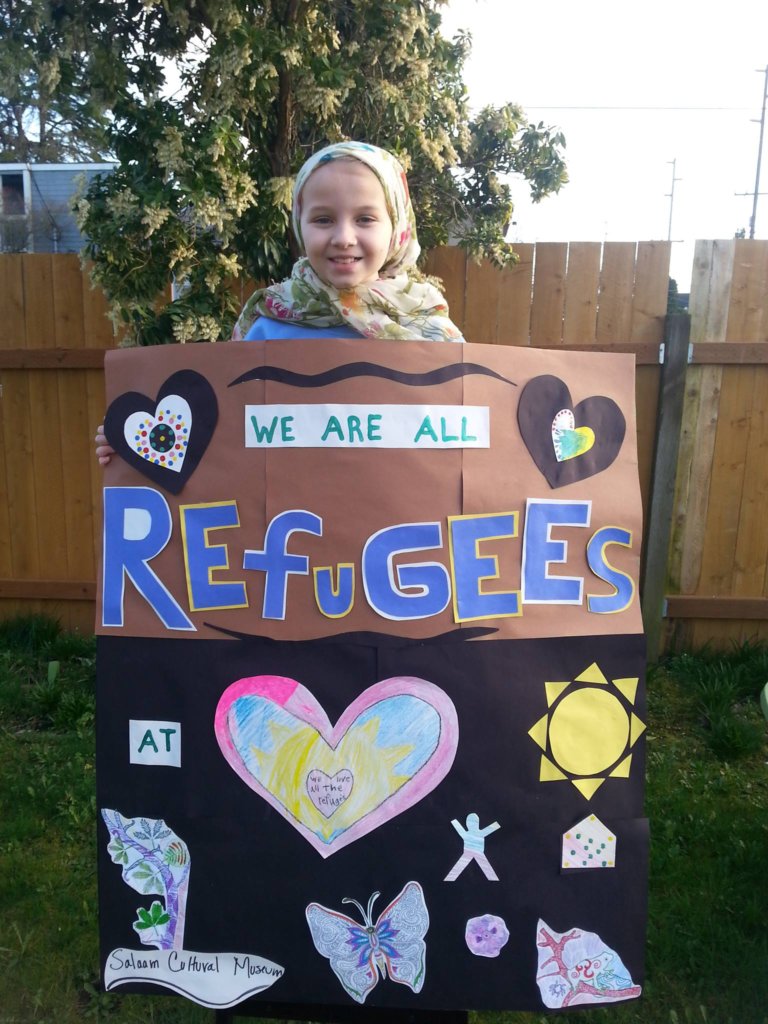 WE ARE ALL
REfuGEES
AT
we love
all the
refuges
Salaam Cultural Museum